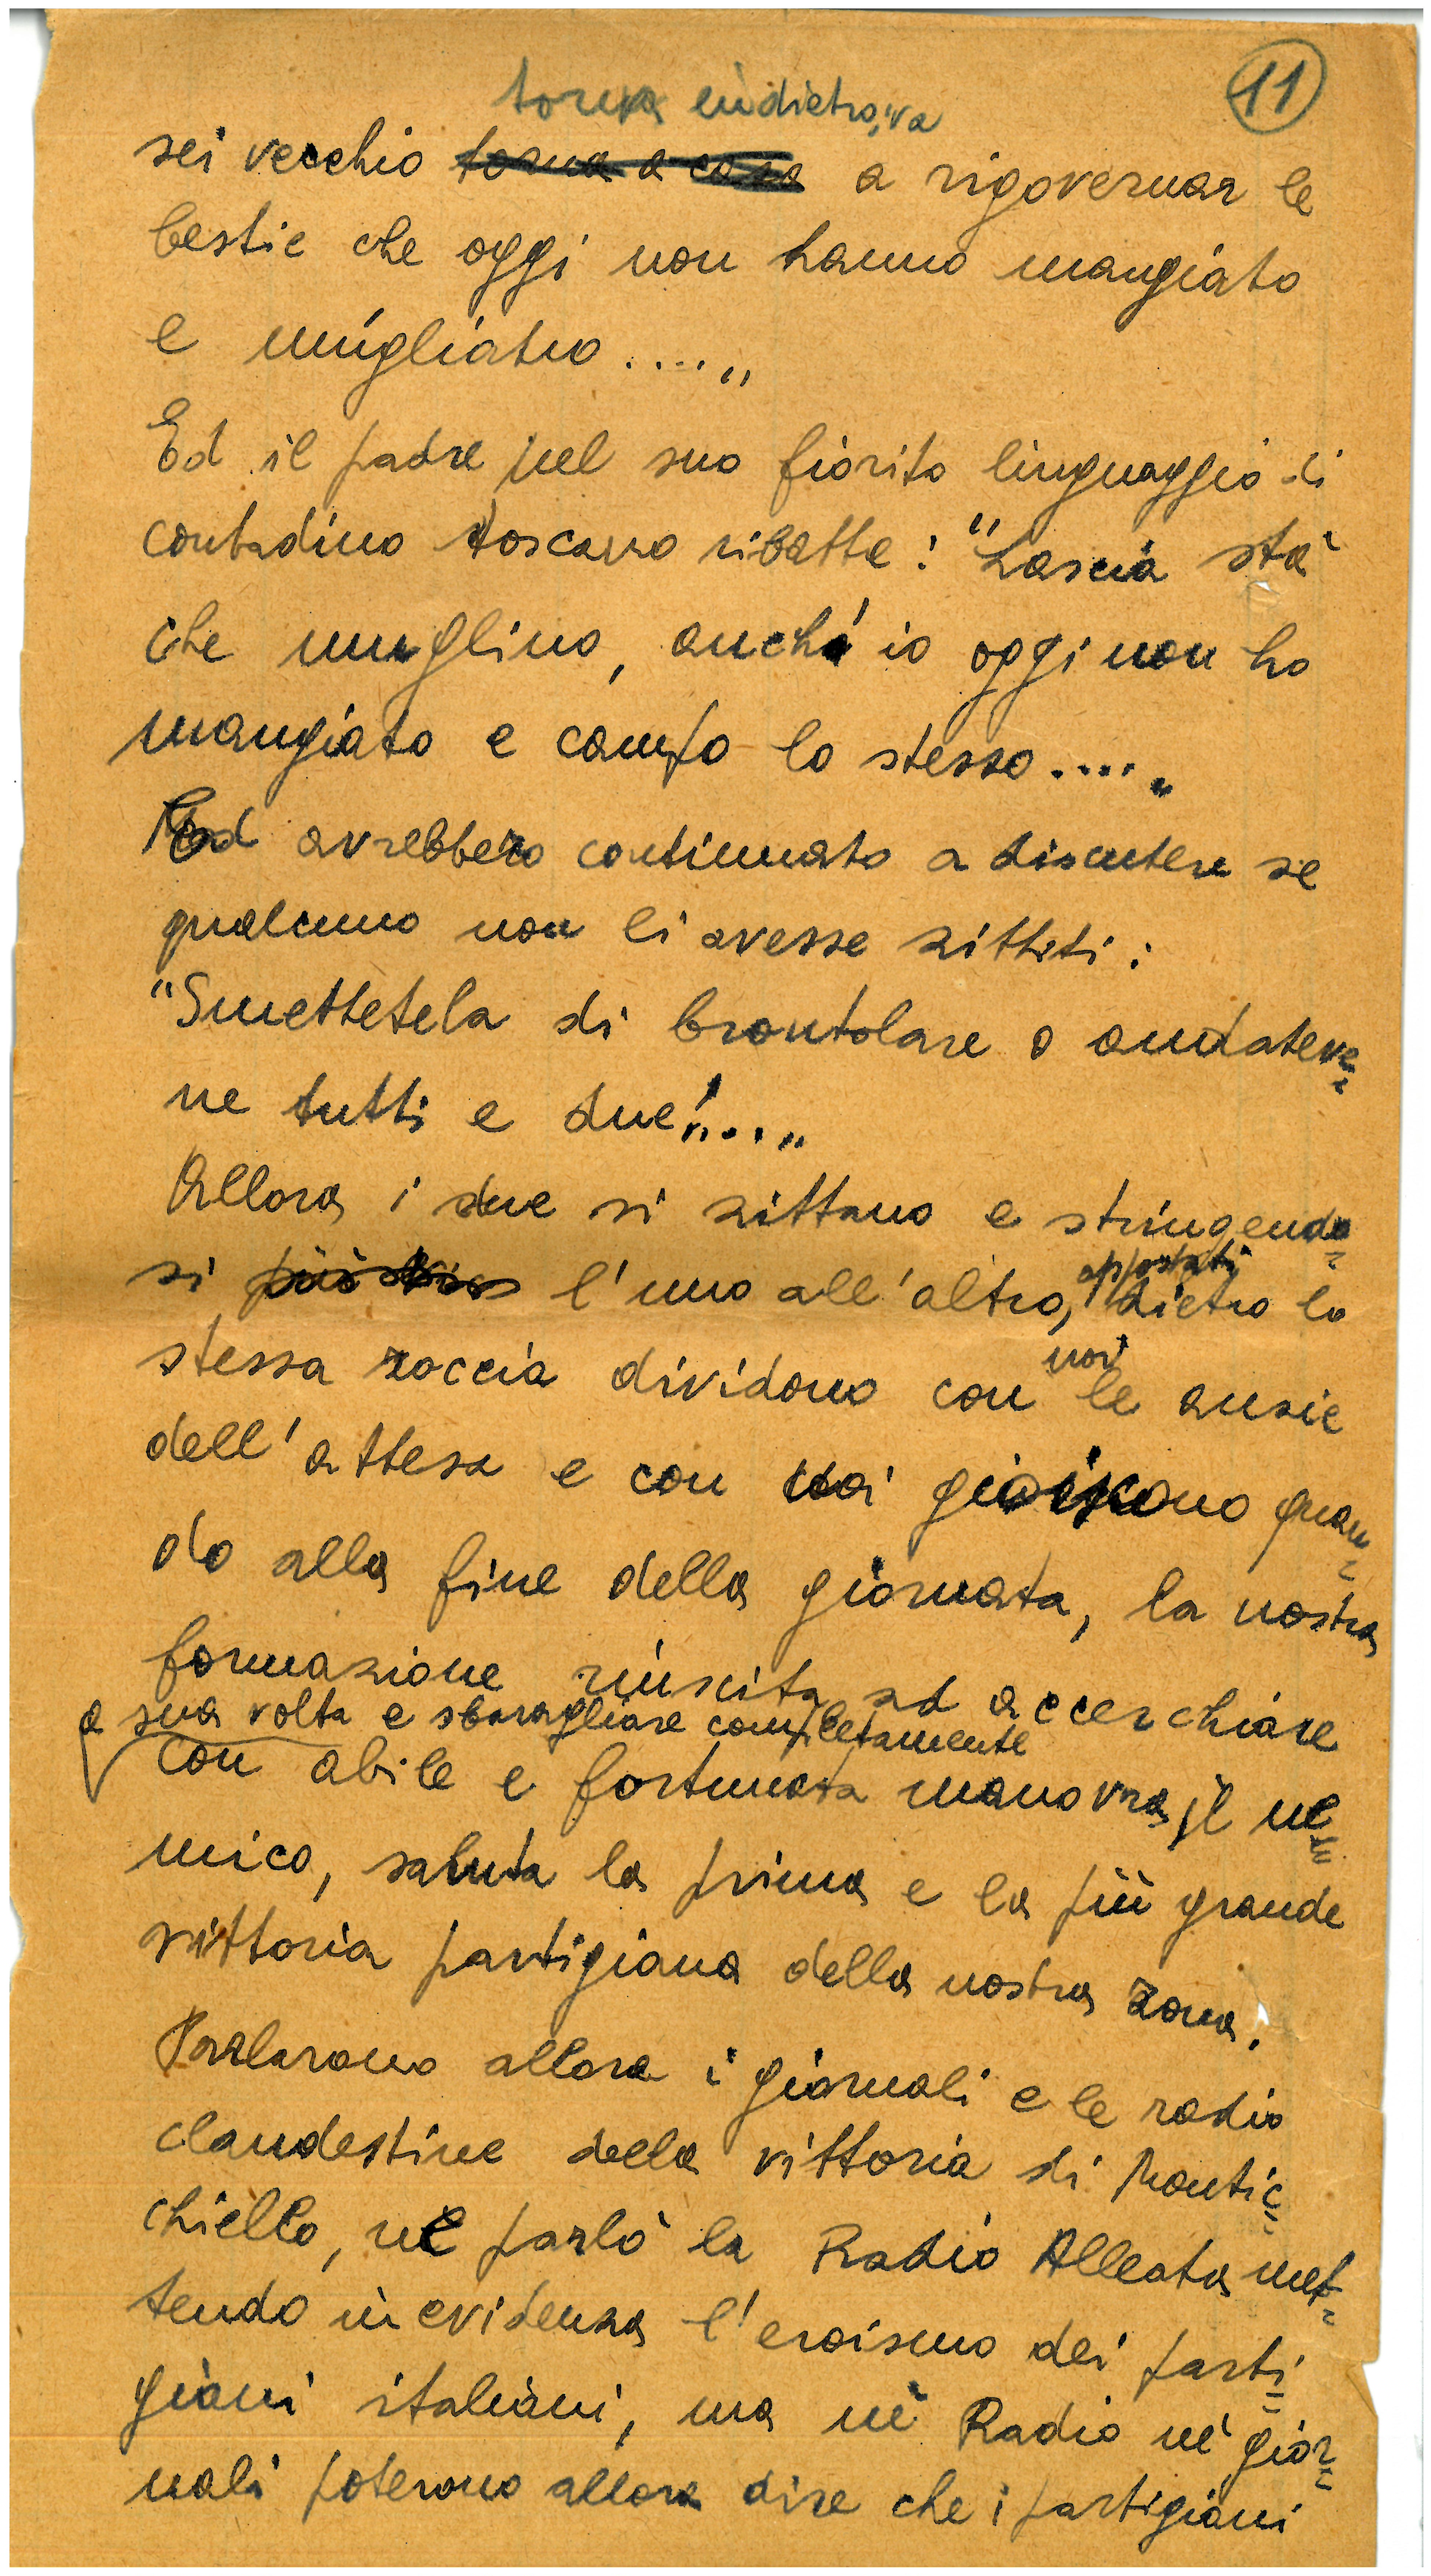 11
torna indietro, va
sei vecchio torna a casa a rigovernar le
bestie che oggi non hanno mangiato
e mugliano ....„
Ed il padre nel suo fiorito linguaggio di
contadino toscano ribatte: "Lascia sta'
che muglino, anch'io oggi non ho
mangiato e campo lo stesso....„
Ed avrebbero continuato a discutere se
qualcuno non li avesse zittiti:
"Smettetela di brontolare o andateve=
ne tutti e due!...„
Allora i due si zittano e stringendo=
si l'uno all'altro, appostati dietro la
stessa roccia dividono con noi le ansie
dell'attesa e con noi gioiscono quan=
do alla fine della giornata, la nostra
formazione riuscita ad accerchiare
a sua volta e sbaragliare completamente
con abile e fortunata manovra il ne=
mico, saluta la prima e la più grande
vittoria partigiana della nostra zona.
Parlarono allora i giornali e le radio
clandestine della vittoria di Montic=
chiello, ne parlò la Radio Alleata met=
tendo in evidenza l'eroismo dei parti=
giani italiani, ma nè Radio nè gior=
nali poterono allora dire che i partigiani